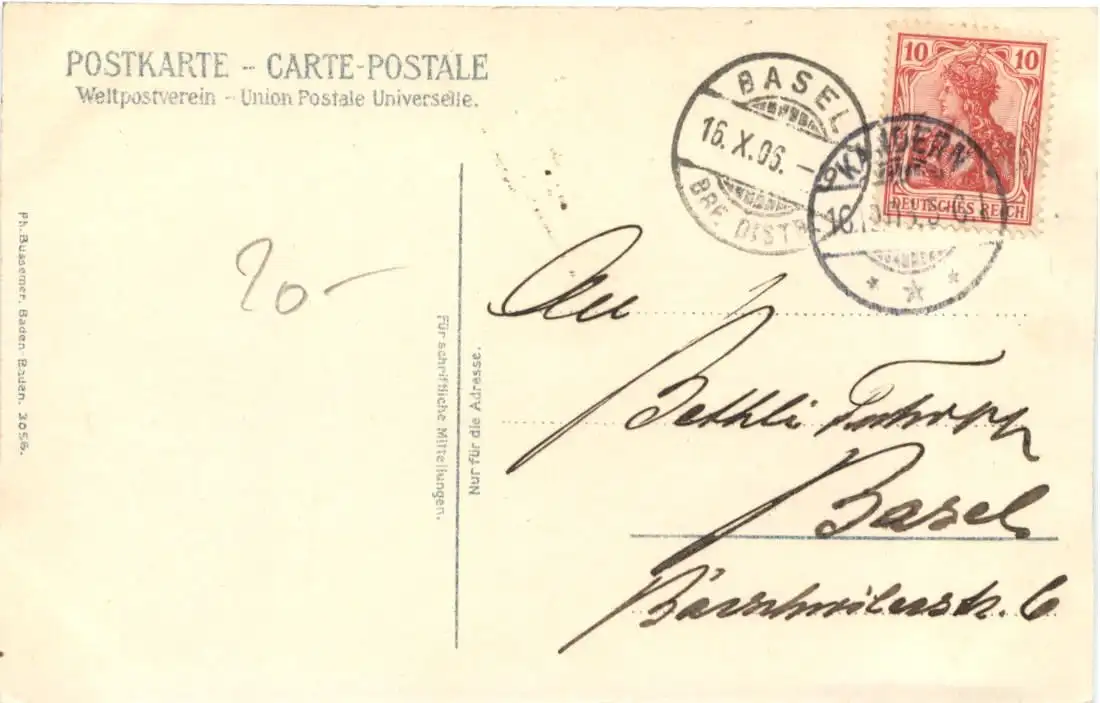 POSTKARTE -- CARTE-POSTALE
Weltpostverein -- Union Postale Universelle.
BASEL
16. X. 06. –
BRF. DISTR.
KANDERN
10
10
DEUTSCHES REICH
20 –
An
Bethli
Basel
Bärschwilerstr. 6
Für schriftliche Mitteilungen.
Nur für die Adresse.
Ph. Bussemer, Baden-Baden. 3056.